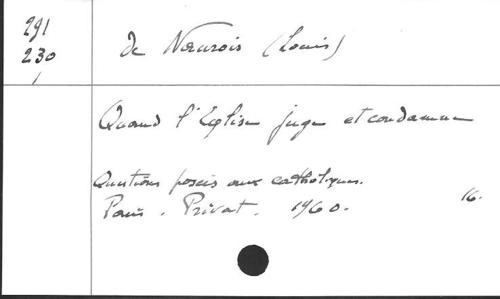 291
230
de Naurois (Louis)
Quand l'Eglise juge et condamne
Questions posées aux catholiques.
Paris. Privat. 1960. 16.